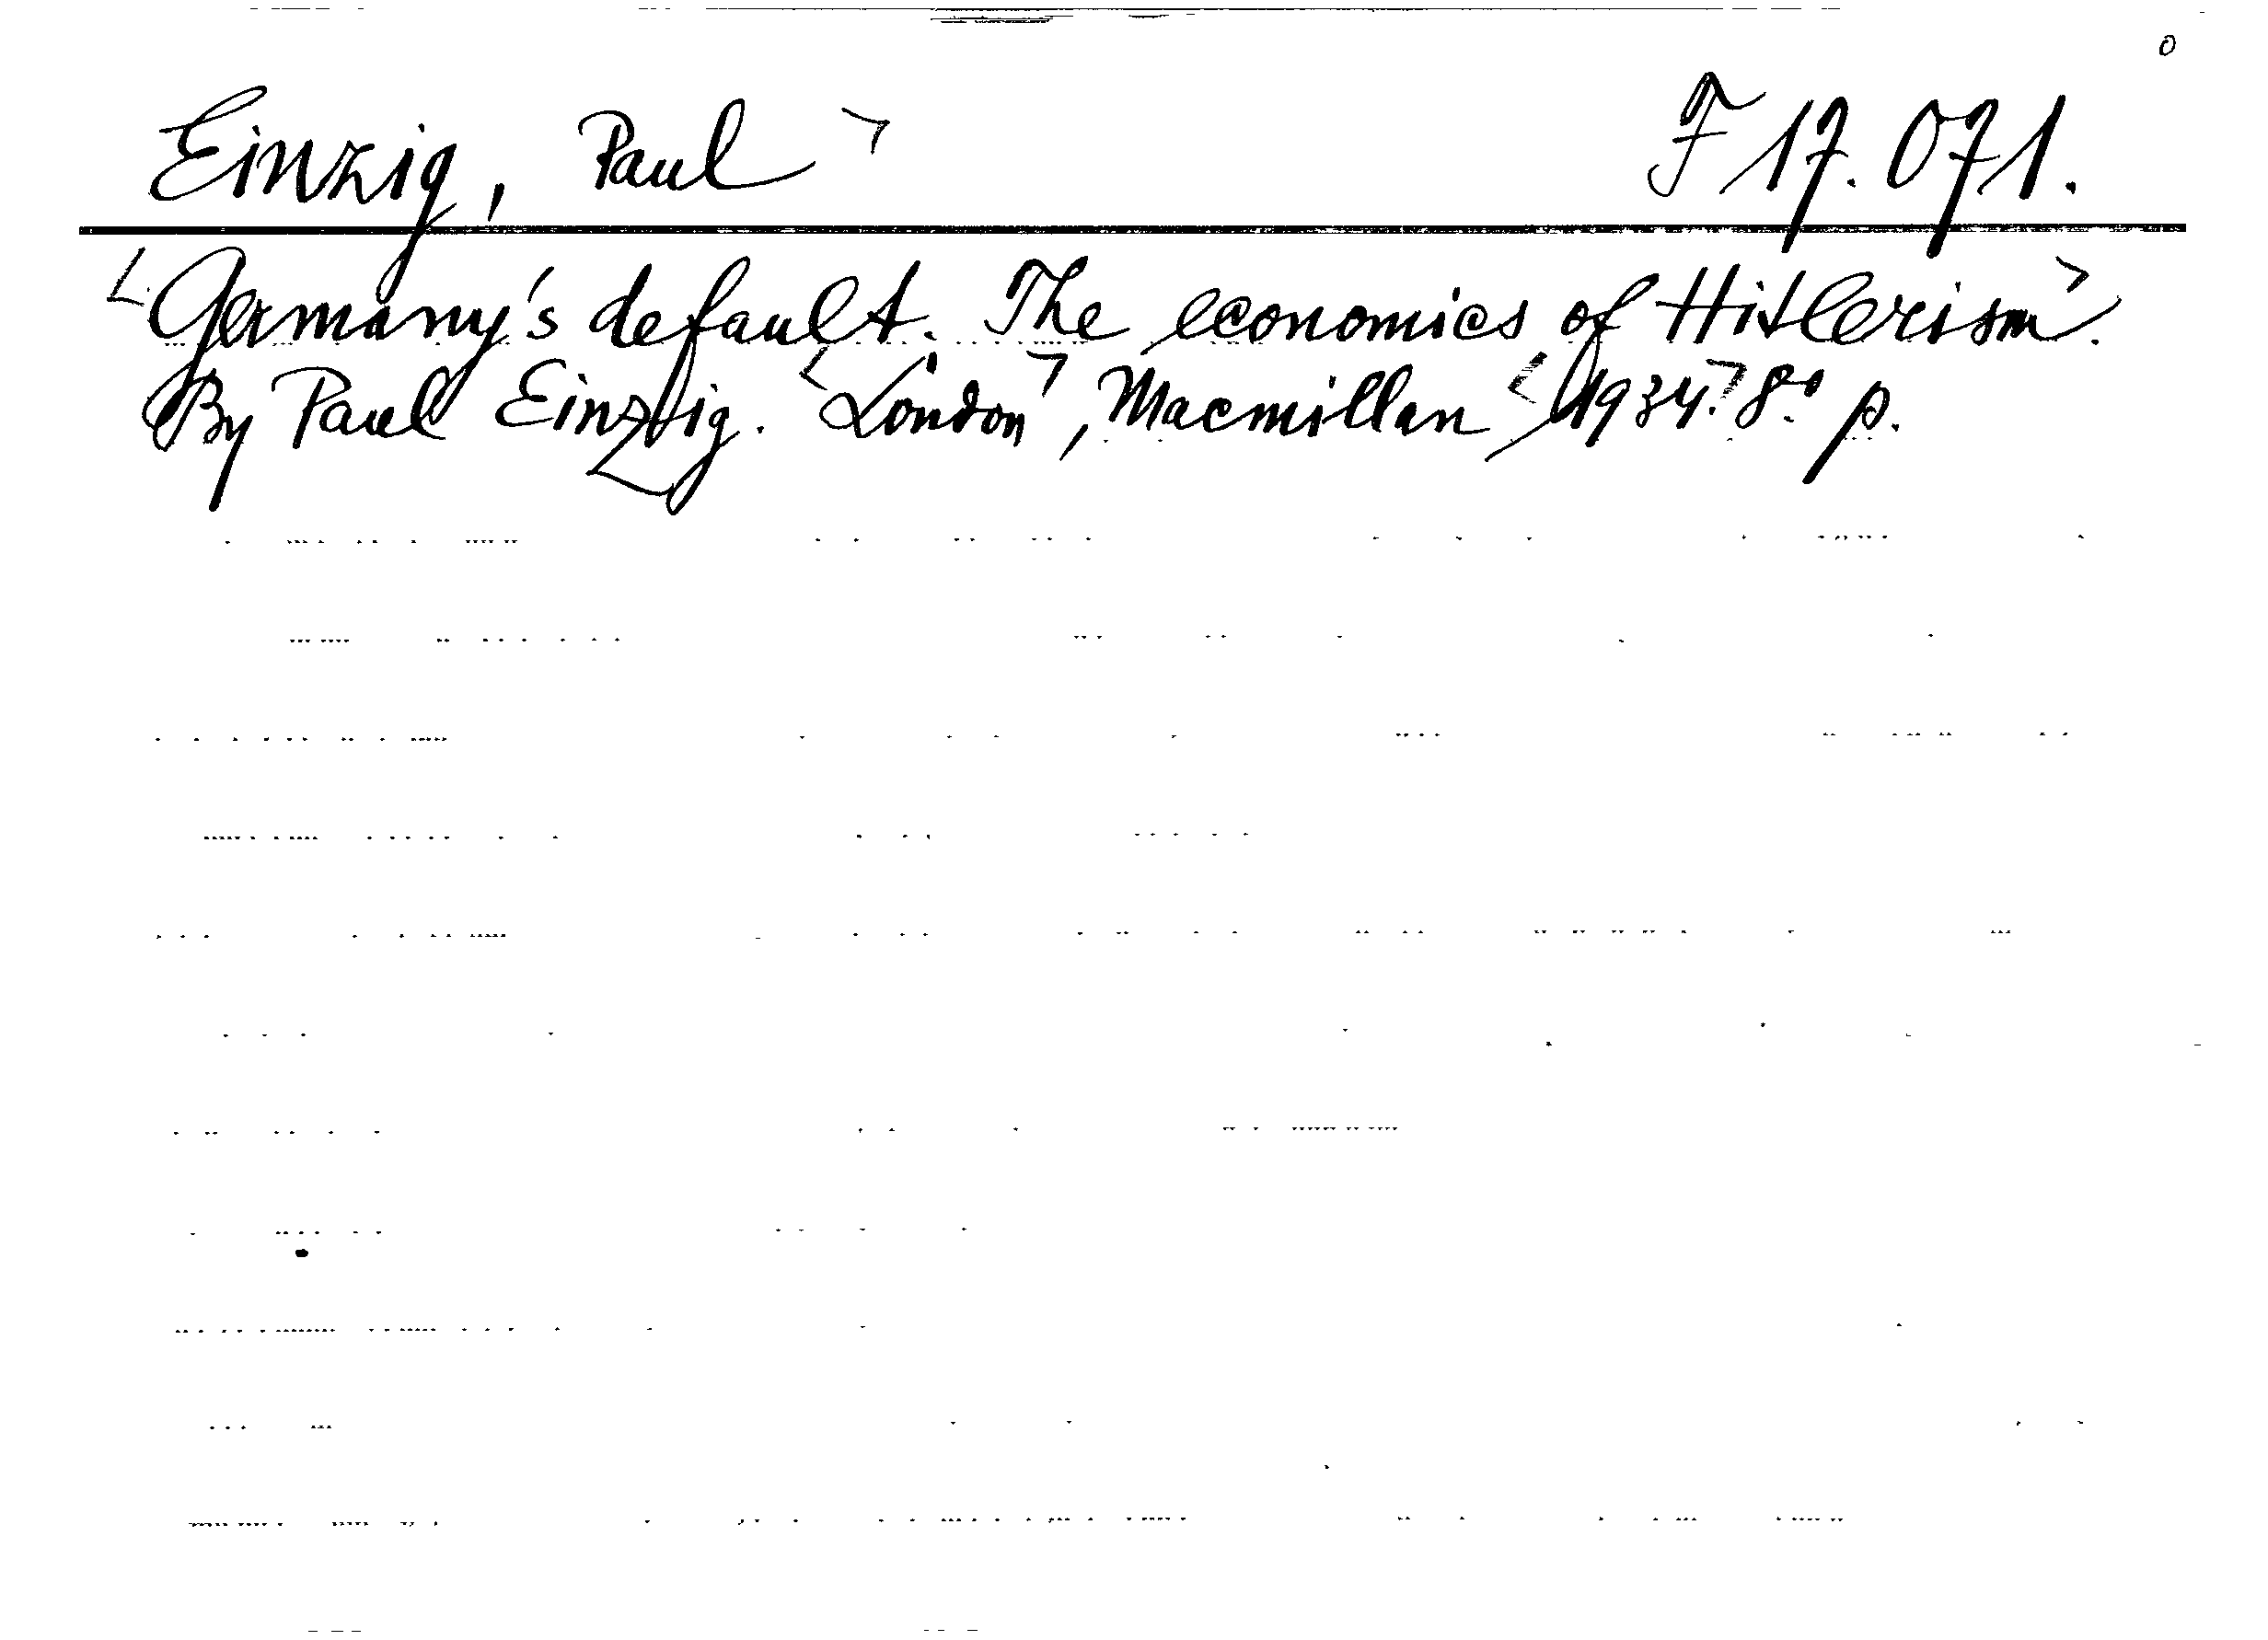 Einzig, Paul F 17.071.
Germany's default. The economics of Hitlerism.
By Paul Einzig. London, Macmillan, 1934. 8° p.